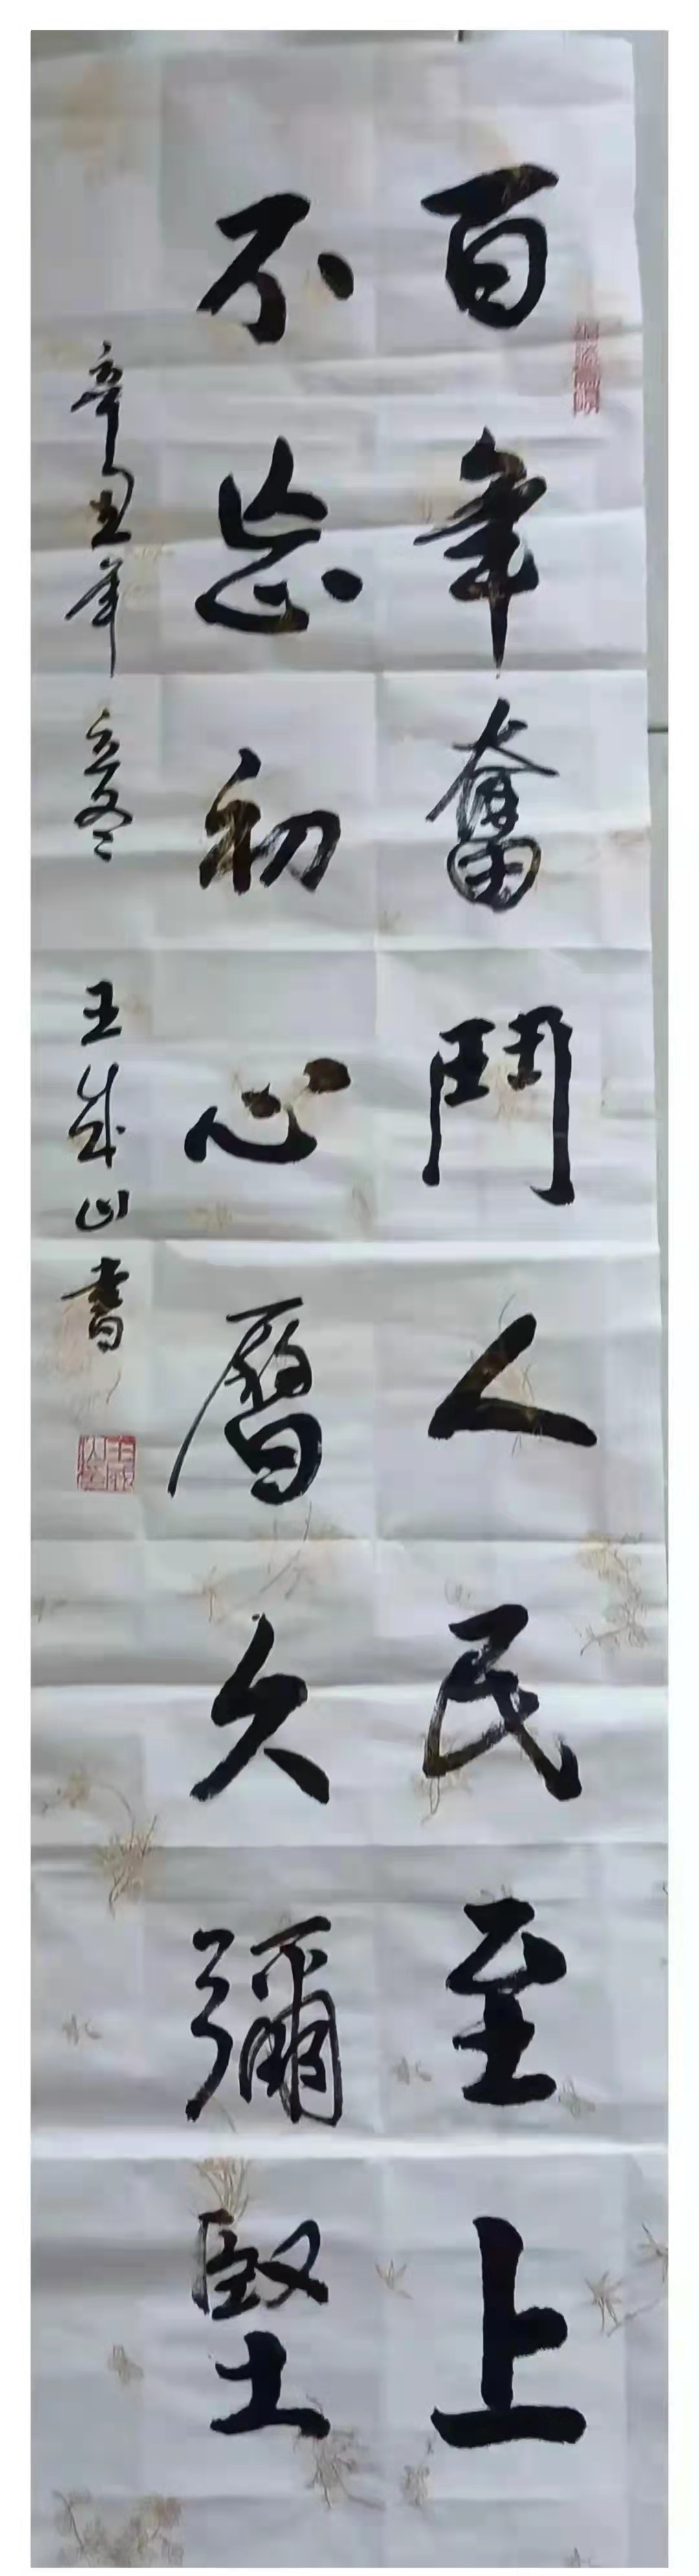 百年奮鬥人民至上
不忘初心曆久彌堅
辛丑年立冬 王成山書